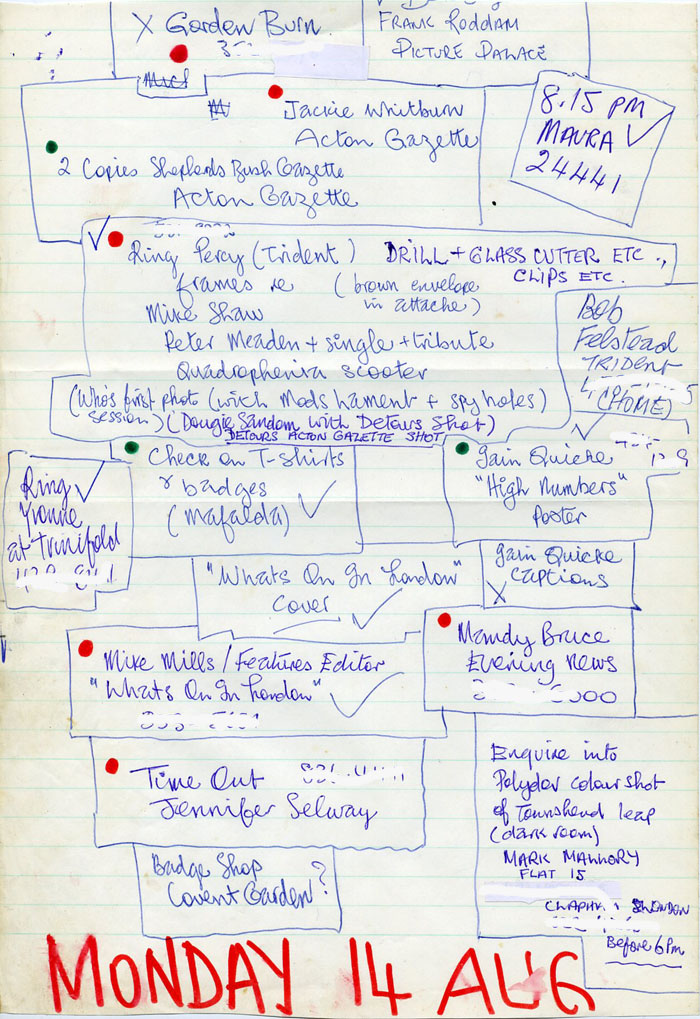 X Gordon Burn
FRANK RODDAM
PICTURE PALACE
Jackie Whitburn
Acton Gazette
2 Copies Shepherds Bush Gazette
Acton Gazette
8.15 PM
MAURA ✓
24441
✓
Ring Percy (Trident)
DRILL + GLASS CUTTER ETC.,
CLIPS ETC.
frames re
(brown envelope
in attache)
Mike Shaw
Peter Meaden + single + tribute
Quadrophenia scooter
(Who's first phot (with Mods hament + spy holes)
session) (Dougie Sandom with Detours Shot)
DETOURS ACTON GAZETTE SHOT
Bob
Felstead
TRIDENT
(HOME)
Ring ✓
Yvonne
at Trinifold
Check on T-shirts
& badges
(Mafalda) ✓
✓
Jain Quicke
"High Numbers"
Poster
"Whats On In London"
Cover ✓
Jain Quicke
Captions
X
Mike Mills / Features Editor
"Whats On In London" ✓
Mandy Bruce
Evening News
Time Out
Jennifer Selway
Enquire into
Polydor colour shot
of Townshend leap
(dark room)
MARK MALLORY
FLAT 15
Before 6pm
Badge Shop
Covent Garden?
MONDAY 14 AUG